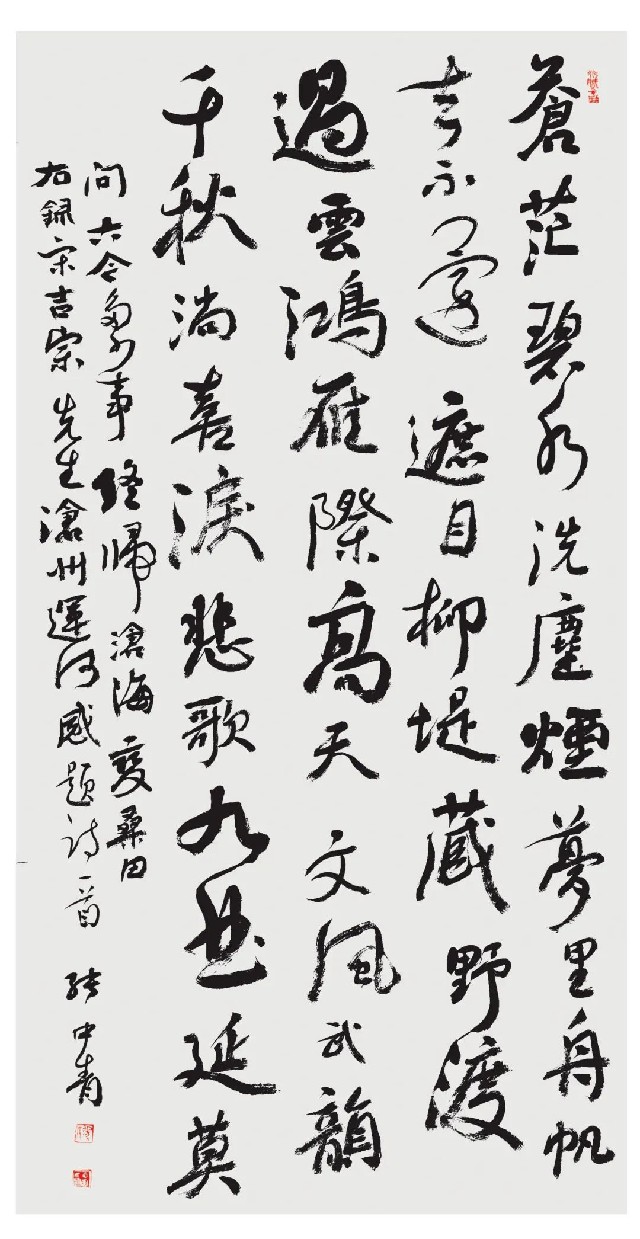 蒼茫碧水洗塵煙夢里舟帆
去不還遮目柳堤藏野渡
遏雲鴻雁際高天文風武韻
千秋淌喜淚悲歌九曲延莫
問古今多少事終歸滄海變桑田
右録宋吉宗先生滄州運河感題詩一首 張中青